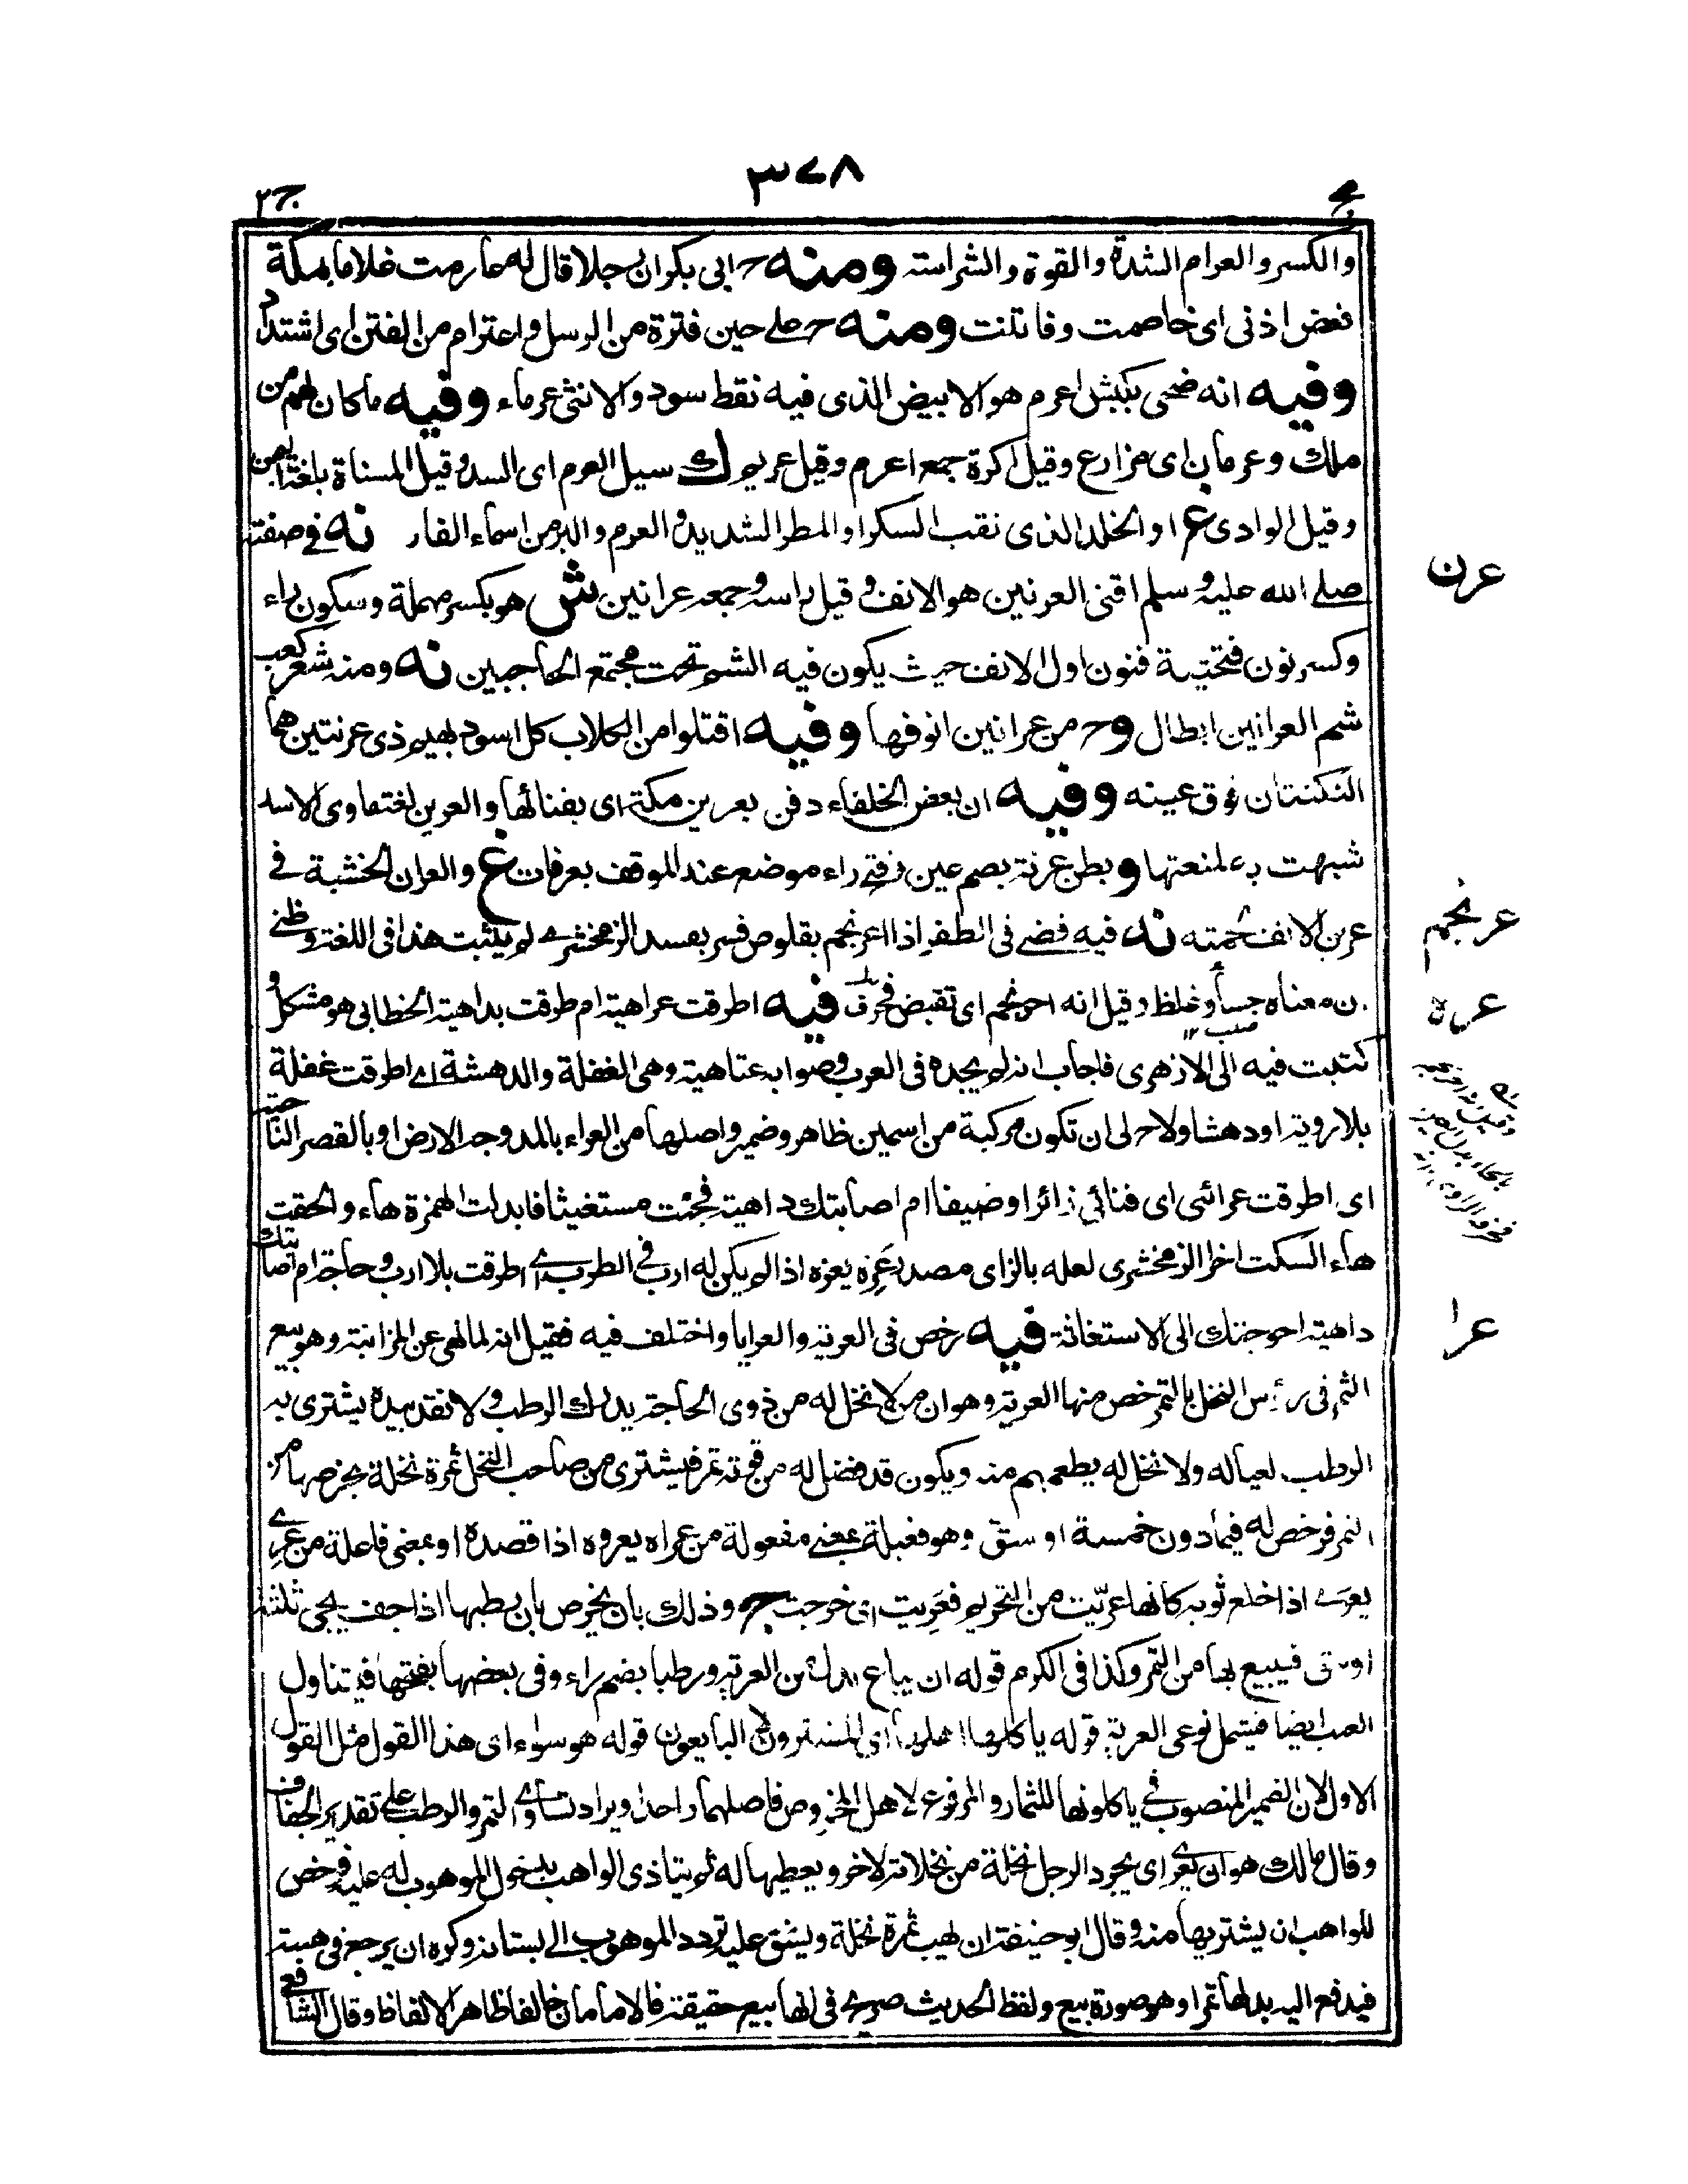 ٣٧٨
ج ٢
والكسر والعرام الشدة والقوة والشراسة ومنه ح ابى بكر ان رجلا قال له عارمت غلاما بمكة
فعض اذنى اى خاصمت وفاتنت ومنه ح على حين فترة من الرسل واعترام من الفتن اى اشتداد
وفيه انه ضحى بكبش اعرم هو الابيض الذى فيه نقط سود والانثى عرماء وفيه ما كان لهم من
ملك وعرمان اى مزارع وقيل اكرة جمع اعرم وقيل عريم ك سيل العرم اى السد وقيل المسناة بلغة اليمن
وقيل الوادى غ او الخلد الذى نقب السكر او المطر الشديد والعرم والبر من اسماء الفار نه فى صفته
صلى الله عليه وسلم اقنى العرنين هو الانف وقيل راسه وجمعه عرانين ش هو بكسر مهملة وسكون راء
وكسر نون فتحتية فنون اول الانف حيث يكون فيه الشم تحت مجتمع الحاجبين نه ومنه شعر كعب
شم العرانين ابطال وح من عرانين انوفها وفيه اقتلوا من الكلاب كل اسود بهيم ذى عرنتين هما
النكتتان فوق عينه وفيه ان بعض الخلفاء دفن بعرين مكة اى بفنائها والعرين لغة ماوى الاسد
شبهت به لمنعتها و بطن عرنة بضم عين وفتح راء موضع عند الموقف بعرفات غ والعران الخشبة فى
عرن الانف نه فيه قضى فى الظفر اذا اعرنجم بقلوص فسر بفسد الزمخشرى لم يثبت هذا فى اللغة وظنى
ان معناه جسأ وغلظ وقيل انه احرنجم اى تقبض فحرف فيه اطرقت عراهية ام طرقت بداهية الخطابى هو مشكل و
كتبت فيه الى الازهرى فاجاب انه لم يجده فى العرب وصوابه عتاهية وهى الغفلة والدهشة اى اطرقت غفلة
بلا روية او دهشا ولاح لى ان تكون مركبة من اسمين ظاهر وضمير واصلها من العراء بالمد وجه الارض او بالقصر الناحية
اى اطرقت عرائى اى فنائى زائرا او ضيفا ام اصابتك داهية فجئت مستغيثا فابدلت الهمزة هاء والحقت
هاء السكت اخرا الزمخشرى لعله بالزاى مصدر عزه يعزه اذا لم يكن له ارب فى الطرب اى اطرقت بلا ارب وحاجة ام اصابتك
داهية احوجتك الى الاستغاثة فيه رخص فى العرية والعرايا واختلف فيه فقيل انه لما نهى عن المزابنة وهو بيع
الثمر فى رؤس النخل بالتمر رخص منها العرية وهو ان من لا نخل له من ذوى الحاجة يدرك الرطب ولا نقد بيده يشترى به
الرطب لعياله ولا نخل له يطعمهم منه ويكون قد فضل له من قوته تمر فيشترى من صاحب النخل ثمرة نخلة بخرصها من
التمر فرخص له فيما دون خمسة اوسق وهو فعيلة بمعنى مفعولة من عراه يعروه اذا قصده او بمعنى فاعلة من عرى
يعرى اذا خلع ثوبه كانها عريت من التحريم فعريت اى خرجت ج وذلك بان يخرص بان رطبها اذا جف يجئ ثلثة
اوسق فيبيع بها من التمر وكذا فى الكرم قوله ان يباع من العرية ورطبا بضم راء وفى بعضها بفتحها فيتناول
العنب ايضا فيشمل نوعى العرية قوله ياكلها اهلها اى المشترون لا البايعون قوله هو سواء اى هذا القول مثل القول
الاول لان الضمير المنصوب فى ياكلونها للثمار والمرفوع لاهل المخروص فاصلهما واحد ويراد تساوى التمر والرطب على تقدير الجفاف
وقال مالك هو ان يعرى اى يجرد الرجل نخلة من نخلاته لاخر ويعطيها له ثم يتاذى الواهب بدخول الموهوب له عليه فرخص
للواهب ان يشتريها منه وقال ابو حنيفة ان يهب ثمرة نخلة ويشق عليه تردد الموهوب الى بستانه وكره ان يرجع فى هبته
فيدفع اليه بدلها تمرا وهو صورة بيع ولفظ الحديث صريح فى انها بيع حقيقة فالامامان خالفا ظاهر الالفاظ وقال الشافعى
عرن
عرنجم
عره
عرا